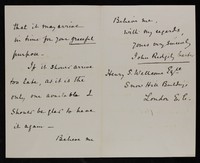 that it may arrive
in time for your graceful
purpose.
If it should arrive
too late, as it is the
only one available I
should be glad to have
it again —
Believe me
Believe me,
with my regards,
Yours very sincerely,
John
Henry S. Wellcome Esqre
Snow Hill Buildings
London E.C.